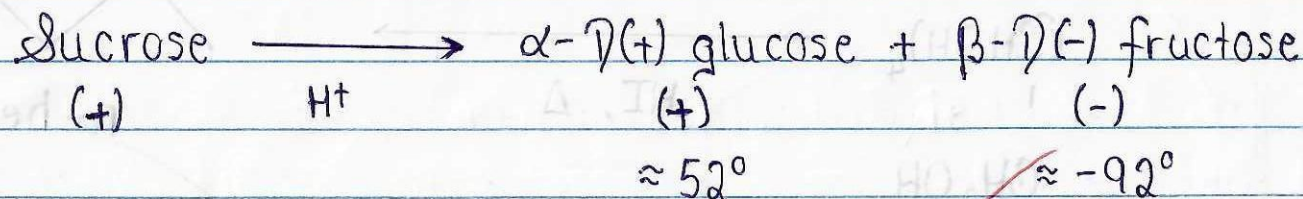 Sucrose ⟶ α-D(+) glucose + β-D(-) fructose
(+) H⁺ (+) (-)
≈ 52° ≈ -92°